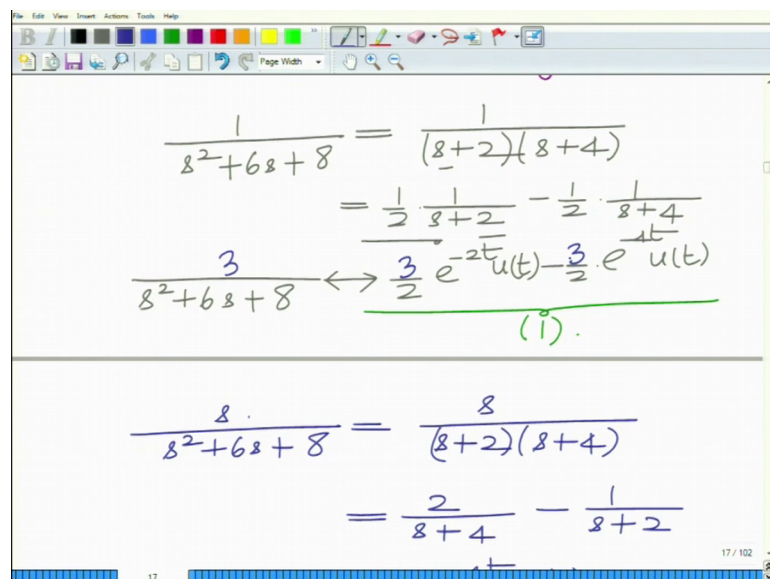 File Edit View Insert Actions Tools Help
B I
Page Width
1/(s²+6s+8) = 1/((s+2)(s+4))
= 1/2 · 1/(s+2) - 1/2 · 1/(s+4)
3/(s²+6s+8) ↔ 3/2 e^(-2t) u(t) - 3/2 · e^(-4t) u(t)
(1).
s/(s²+6s+8) = s/((s+2)(s+4))
= 2/(s+4) - 1/(s+2)
17 / 102
17